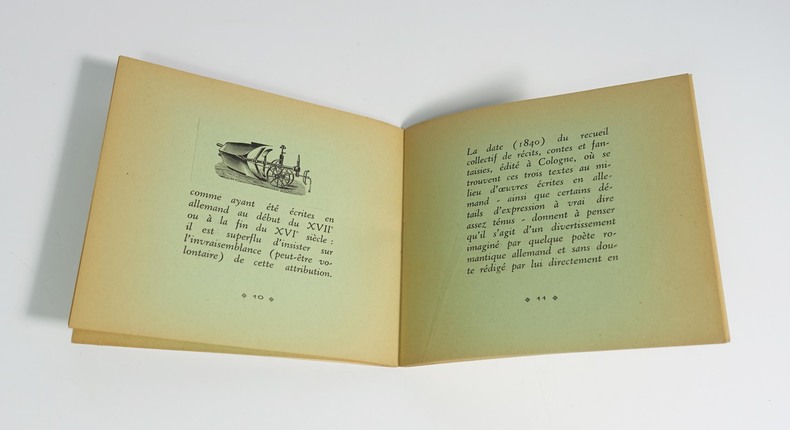 comme ayant été écrites en
allemand au début du XVIIᵉ
ou à la fin du XVIᵉ siècle :
il est superflu d'insister sur
l'invraisemblance (peut-être vo-
lontaire) de cette attribution.
❖ 10 ❖
La date (1840) du recueil
collectif de récits, contes et fan-
taisies, édité à Cologne, où se
trouvent ces trois textes au mi-
lieu d'œuvres écrites en alle-
mand - ainsi que certains dé-
tails d'expression à vrai dire
assez ténus - donnent à penser
qu'il s'agit d'un divertissement
imaginé par quelque poète ro-
mantique allemand et sans dou-
te rédigé par lui directement en
❖ 11 ❖